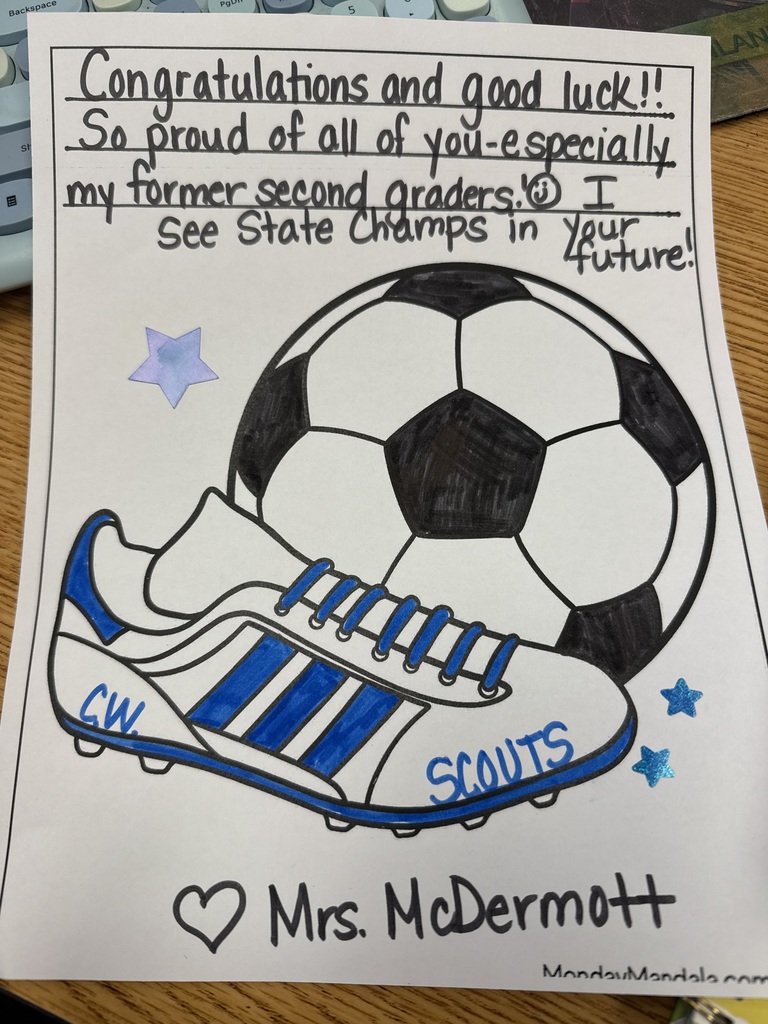 Backspace
PgDn
5
Congratulations and good luck!!
So proud of all of you-especially
my former second graders! I
see State Champs in your
future!
C.W.
SCOUTS
Mrs. McDermott
MondayMandala.com